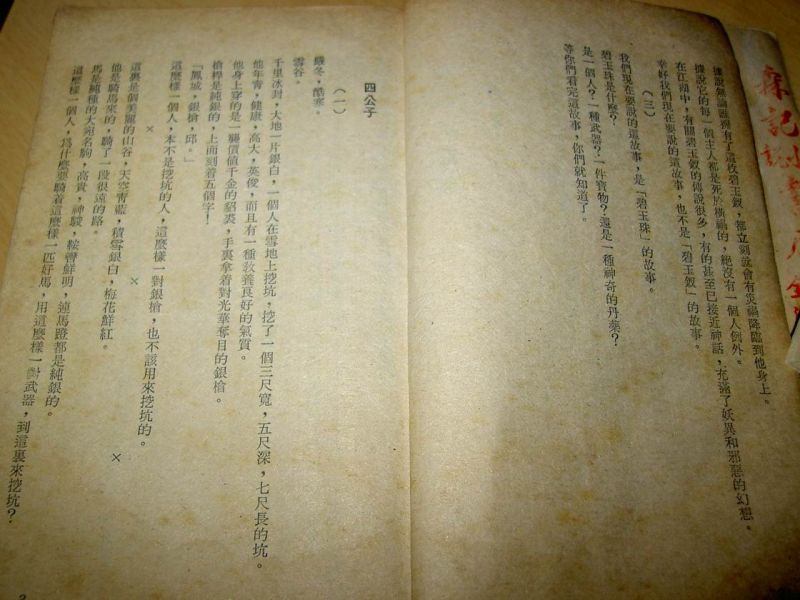 據說無論誰擁有了這枚碧玉釵,都立刻就會有災禍降臨到他身上。
據說它的每一個主人都是死於橫禍的,絕沒有一個人例外。
在江湖中,有關碧玉釵的傳說很多,有的甚至已接近神話,充滿了妖異和邪惡的幻想。
幸好我們現在要說的這故事,也不是「碧玉釵」的故事。
(三)
我們現在要說的這故事,是「碧玉珠」的故事。
碧玉珠是什麼?
是一個人?一種武器?一件寶物?還是一種神奇的丹藥?
等你們看完這故事,你們就知道了。
四公子
(一)
嚴冬,酷寒。
雪谷。
千里冰封,大地一片銀白,一個人在雪地上挖坑,挖了一個三尺寬,五尺深,七尺長的坑。
他年青,健康,高大,英俊,而且有一種教養良好的氣質。
他身上穿的是一襲價值千金的貂裘,手裏拿着對光華奪目的銀槍。
槍桿是純銀的,上面刻着五個字:
「鳳城,銀槍,邱。」
這麼樣一個人,本不是挖坑的人,這麼樣一對銀槍,也不該用來挖坑的。
× × ×
這裏是個美麗的山谷,天空青藍,積雪銀白,梅花鮮紅。
他是騎馬來的,騎了一段很遠的路。
馬是純種的大宛名駒,高貴,神駿,鞍轡鮮明,連馬蹬都是純銀的。
這麼樣一個人,爲什麼要騎着這麼樣一匹好馬,用這麼樣一對武器,到這裏來挖坑?
森記